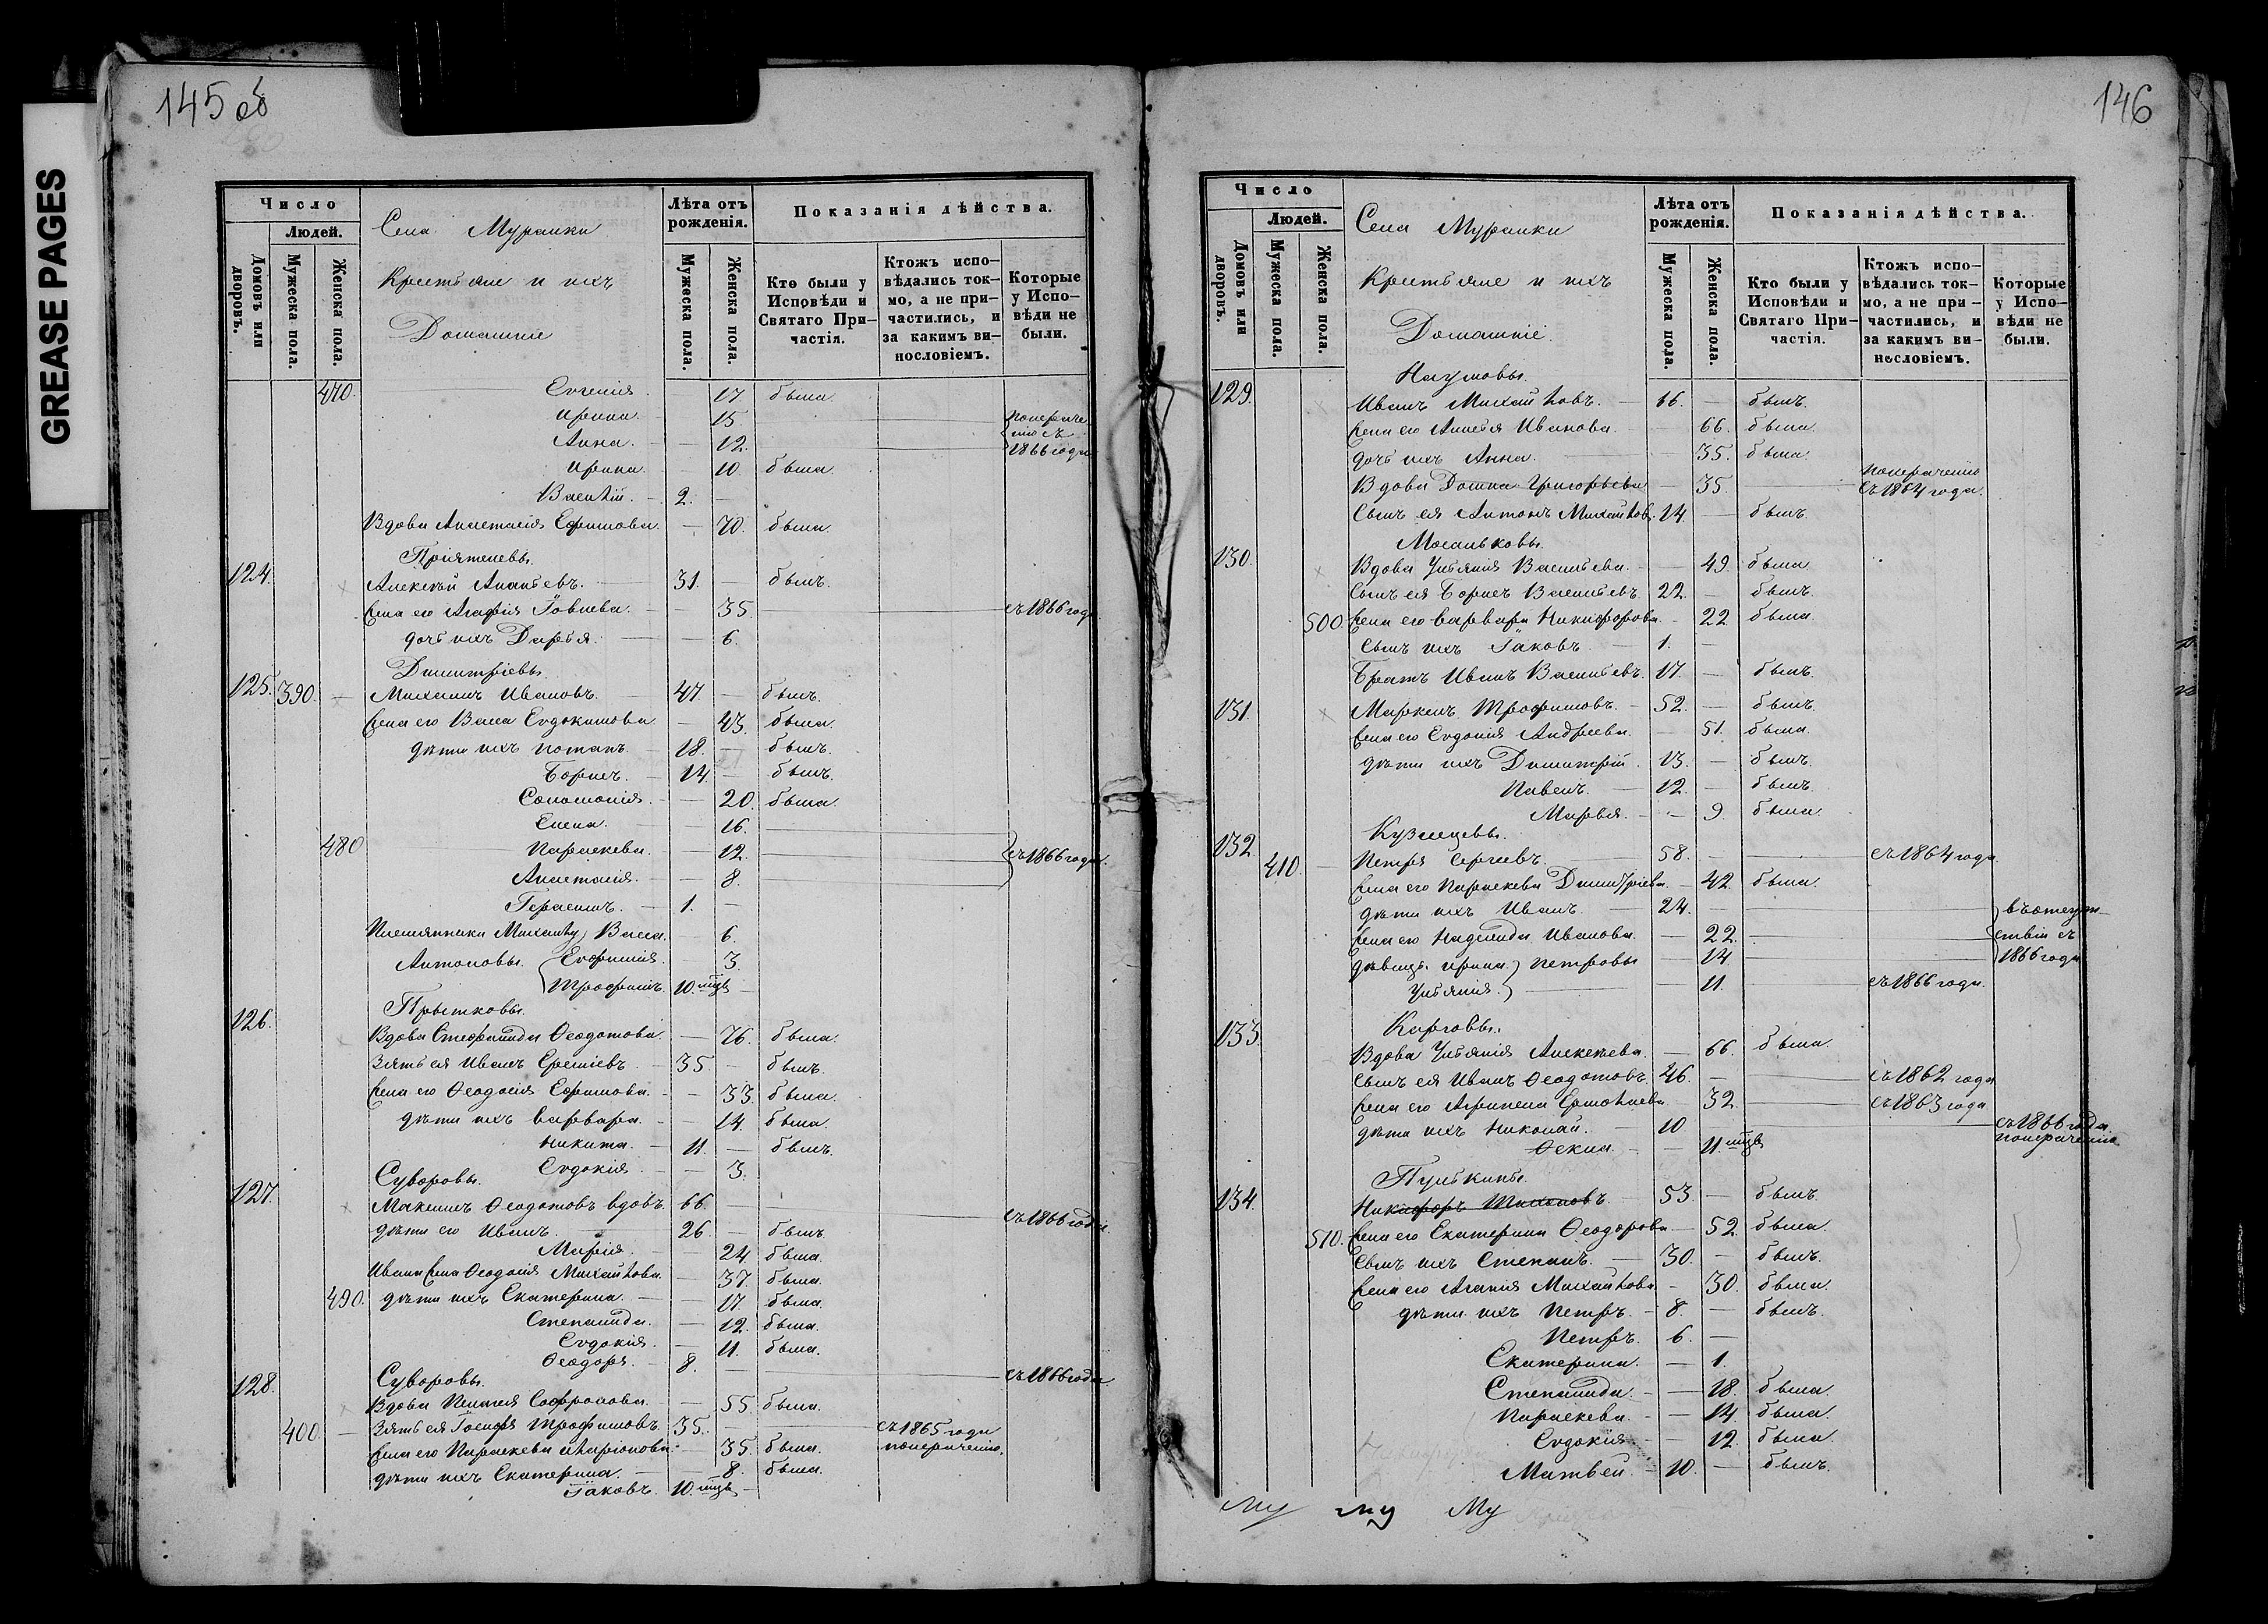 GREASE PAGES
145 об
Число
Людей.
Домовъ или дворовъ.
Мужеска пола.
Женска пола.
Села Муранки
Крестьяне и ихъ
Домашніе
Лѣта отъ рожденія.
Мужеска пола.
Женска пола.
Показанія дѣйства.
Кто были у Исповѣди и Святаго При-частія.
Ктожъ испо-вѣдались ток-мо, а не при-частились, и за какимъ ви-нословіемъ.
Которые у Испо-вѣди не были.
470. Евгенія. 17 была.
Ирина. 15.
Анна. 12. 1866 года
Ирина. 10 была
Василій. 2.
Вдова Анастасія Ефимова. 70. была.
Пріятелевы.
124. Алексѣй Ананьевъ. 31. былъ.
Жена его Агафія Іовлева. 35. съ 1866 года
дочь ихъ Дарья. 6.
Димитріевы.
125. 390. Михаилъ Ивановъ. 47 былъ.
Жена его Васса Евдокимова 43. была.
дѣти ихъ Потапъ. 18. былъ.
Борисъ. 14. былъ.
Соломонія. 20. была.
Елена. 16.
480 Параскева. 12. съ 1866 года.
Анастасія. 8.
Герасимъ. 1.
Племянники Михаилу Васса. 6.
Антоновы. Евфимія. 3.
Трофимъ. 10. мцъ
Прытковы.
126. Вдова Стефанида Ѳеодотова. 76. была.
Зять ея Иванъ Еремѣевъ. 35 былъ.
Жена его Ѳеодосія Ефимова. 33. была.
дѣти ихъ Варвара. 14. была.
Никита. 11. былъ.
Евдокія. 3.
Суворовы.
127. Максимъ Ѳеодотовъ вдовъ. 66. съ 1866 года.
дѣти его Иванъ. 26. былъ.
Марія. 24. была.
Ивана жена Ѳеодосія Михайлова. 37. была.
490. дѣти ихъ Екатерина. 17. была.
Степанида. 12. была.
Евдокія. 11. была.
Ѳеодоръ. 8. съ 1866 года
Суворовы.
128. Вдова Пелагея Софронова. 55. была.
400. Зять ея Іосифъ Трофимовъ. 35. съ 1865 года
Жена его Параскева Иларіонова. 35. была. понераченію.
дѣти ихъ Екатерина. 8. была.
Іаковъ. 10. мцъ
146
Число
Людей.
Домовъ или дворовъ.
Мужеска пола.
Женска пола.
Села Муранки
Крестьяне и ихъ
Домашніе.
Лѣта отъ рожденія.
Мужеска пола.
Женска пола.
Показанія дѣйства.
Кто были у Исповѣди и Святаго При-частія.
Ктожъ испо-вѣдались ток-мо, а не при-частились, и за какимъ ви-нословіемъ.
Которые у Испо-вѣди не были.
Наумовы.
129. Иванъ Михайловъ. 16. былъ.
Жена его Анисья Иванова. 66. была.
дочь ихъ Анна. 35. была.
Вдова Домна Григорьева 35. понераченію съ 1864 года.
Сынъ ея Антонъ Михайловъ. 14. былъ.
Мосальковы.
130. Вдова Ульянія Васильева. 49. была.
Сынъ ея Борисъ Васильевъ. 22. былъ.
500. Жена его Варвара Никифорова. 22 была.
Сынъ ихъ Іаковъ. 1.
Братъ Иванъ Васильевъ. 17. былъ.
131. Маркелъ Трофимовъ. 52. былъ.
Жена его Евдокія Андреева. 51. была.
дѣти ихъ Димитрій. 13. былъ.
Павелъ. 12. былъ.
Марья. 9. была.
Кузнецевы.
132. 410. Петръ Сергѣевъ. 58. съ 1864 года.
Жена его Параскева Димитріева. 42. была.
дѣти ихъ Иванъ. 24. въ отсут-
Жена его Надежда Иванова. 22. ствіи съ
дѣвицы Ирина Петровы 14 1866 года
Ульянія. 11. съ 1866 года.
Карговы.
133. Вдова Ульянія Алексѣева. 66. была.
Сынъ ея Иванъ Ѳеодотовъ. 46. съ 1862 года
Жена его Агрипена Ермолаева 32. съ 1863 года
дѣти ихъ Николай. 10 съ 1866 года. понераченію
Ѳекла. 11. мцъ
Пулькины.
134. Никифоръ 53. былъ.
510. Жена его Екатерина Ѳеодорова. 52. была.
Сынъ ихъ Степанъ. 30. былъ.
Жена его Агапія Михайлова 30. была.
дѣти ихъ Петръ. 8. былъ.
Петръ. 6.
Екатерина. 1.
Степанида. 18. была.
Параскева. 14. была.
Евдокія. 12. была.
Матвей. 10. былъ.
Му Му Му